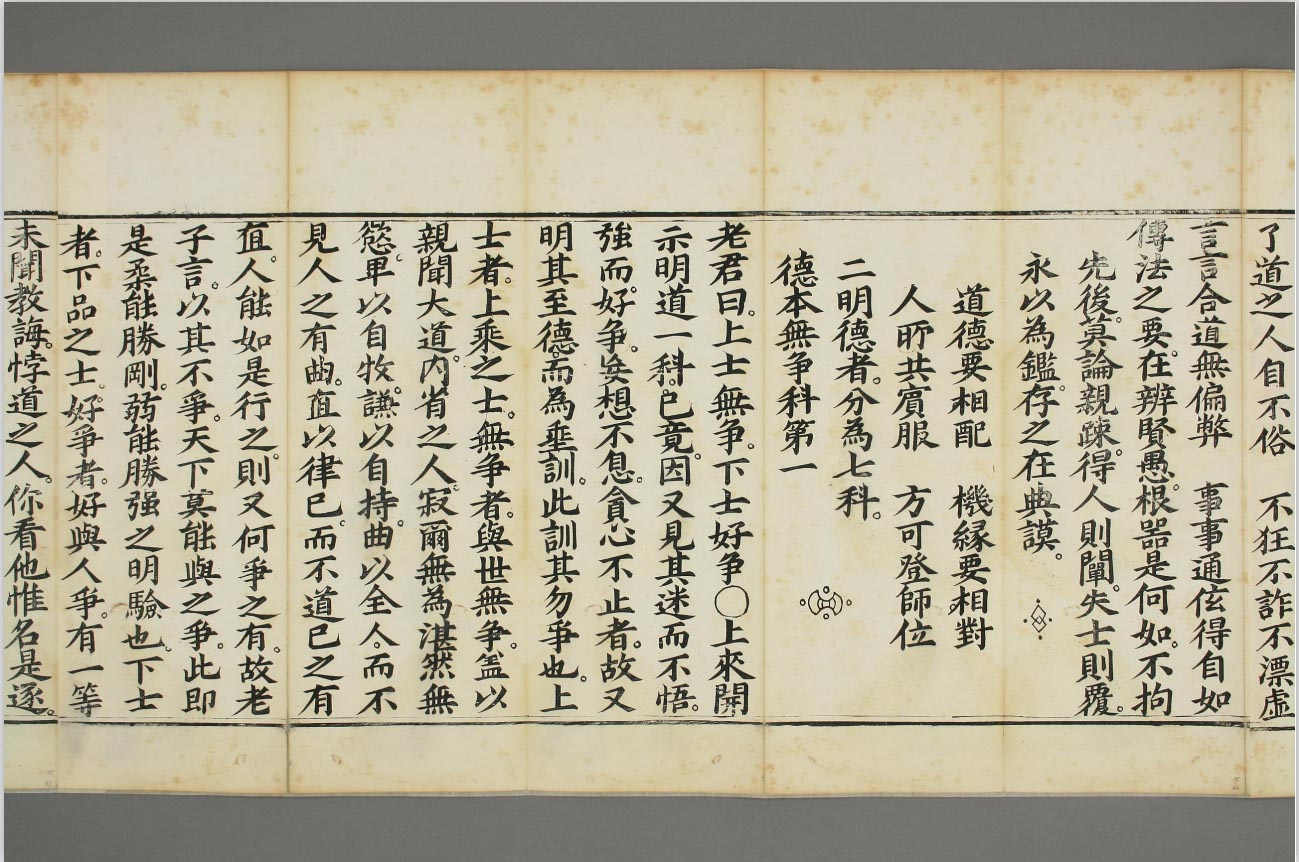 了道之人自不俗　不狂不詐不漂虛
言言合道無偏弊　事事通伭得自如
傳法之要。在辨賢愚。根噐是何如。不拘
先後。莫論親踈。得人則闡。失士則覆。
永以為鑑。存之在典謨。
道德要相配　機緣要相對
人𠩄共賔服　方可登師位
二明德者。分為七科。
德本無争科第一
老君曰。上士無争。下士好争〇上來開
示明道一科。已竟。因又見其迷而不悟。
強而。好争。妄想不息。貪心不止者。故又
明其至德。而為垂訓。此訓其勿爭也。上
士者。上乘之士。無争者。與世無争。盖以
親聞大道。内省之人。寂爾無為。湛然無
慾。卑以自牧。謙以自持。曲以全人。而不
見人之有曲。直以律已。而不道已之有
直。人能如是行之。則又何爭之有。故老
子言。以其不爭。天下莫能與之爭。此即
是柔能勝剛。弱能勝强之明驗也。下士
者。下品之士。好爭者。好與人爭。有一等
未聞教誨。悖道之人。你看他惟名是逐。